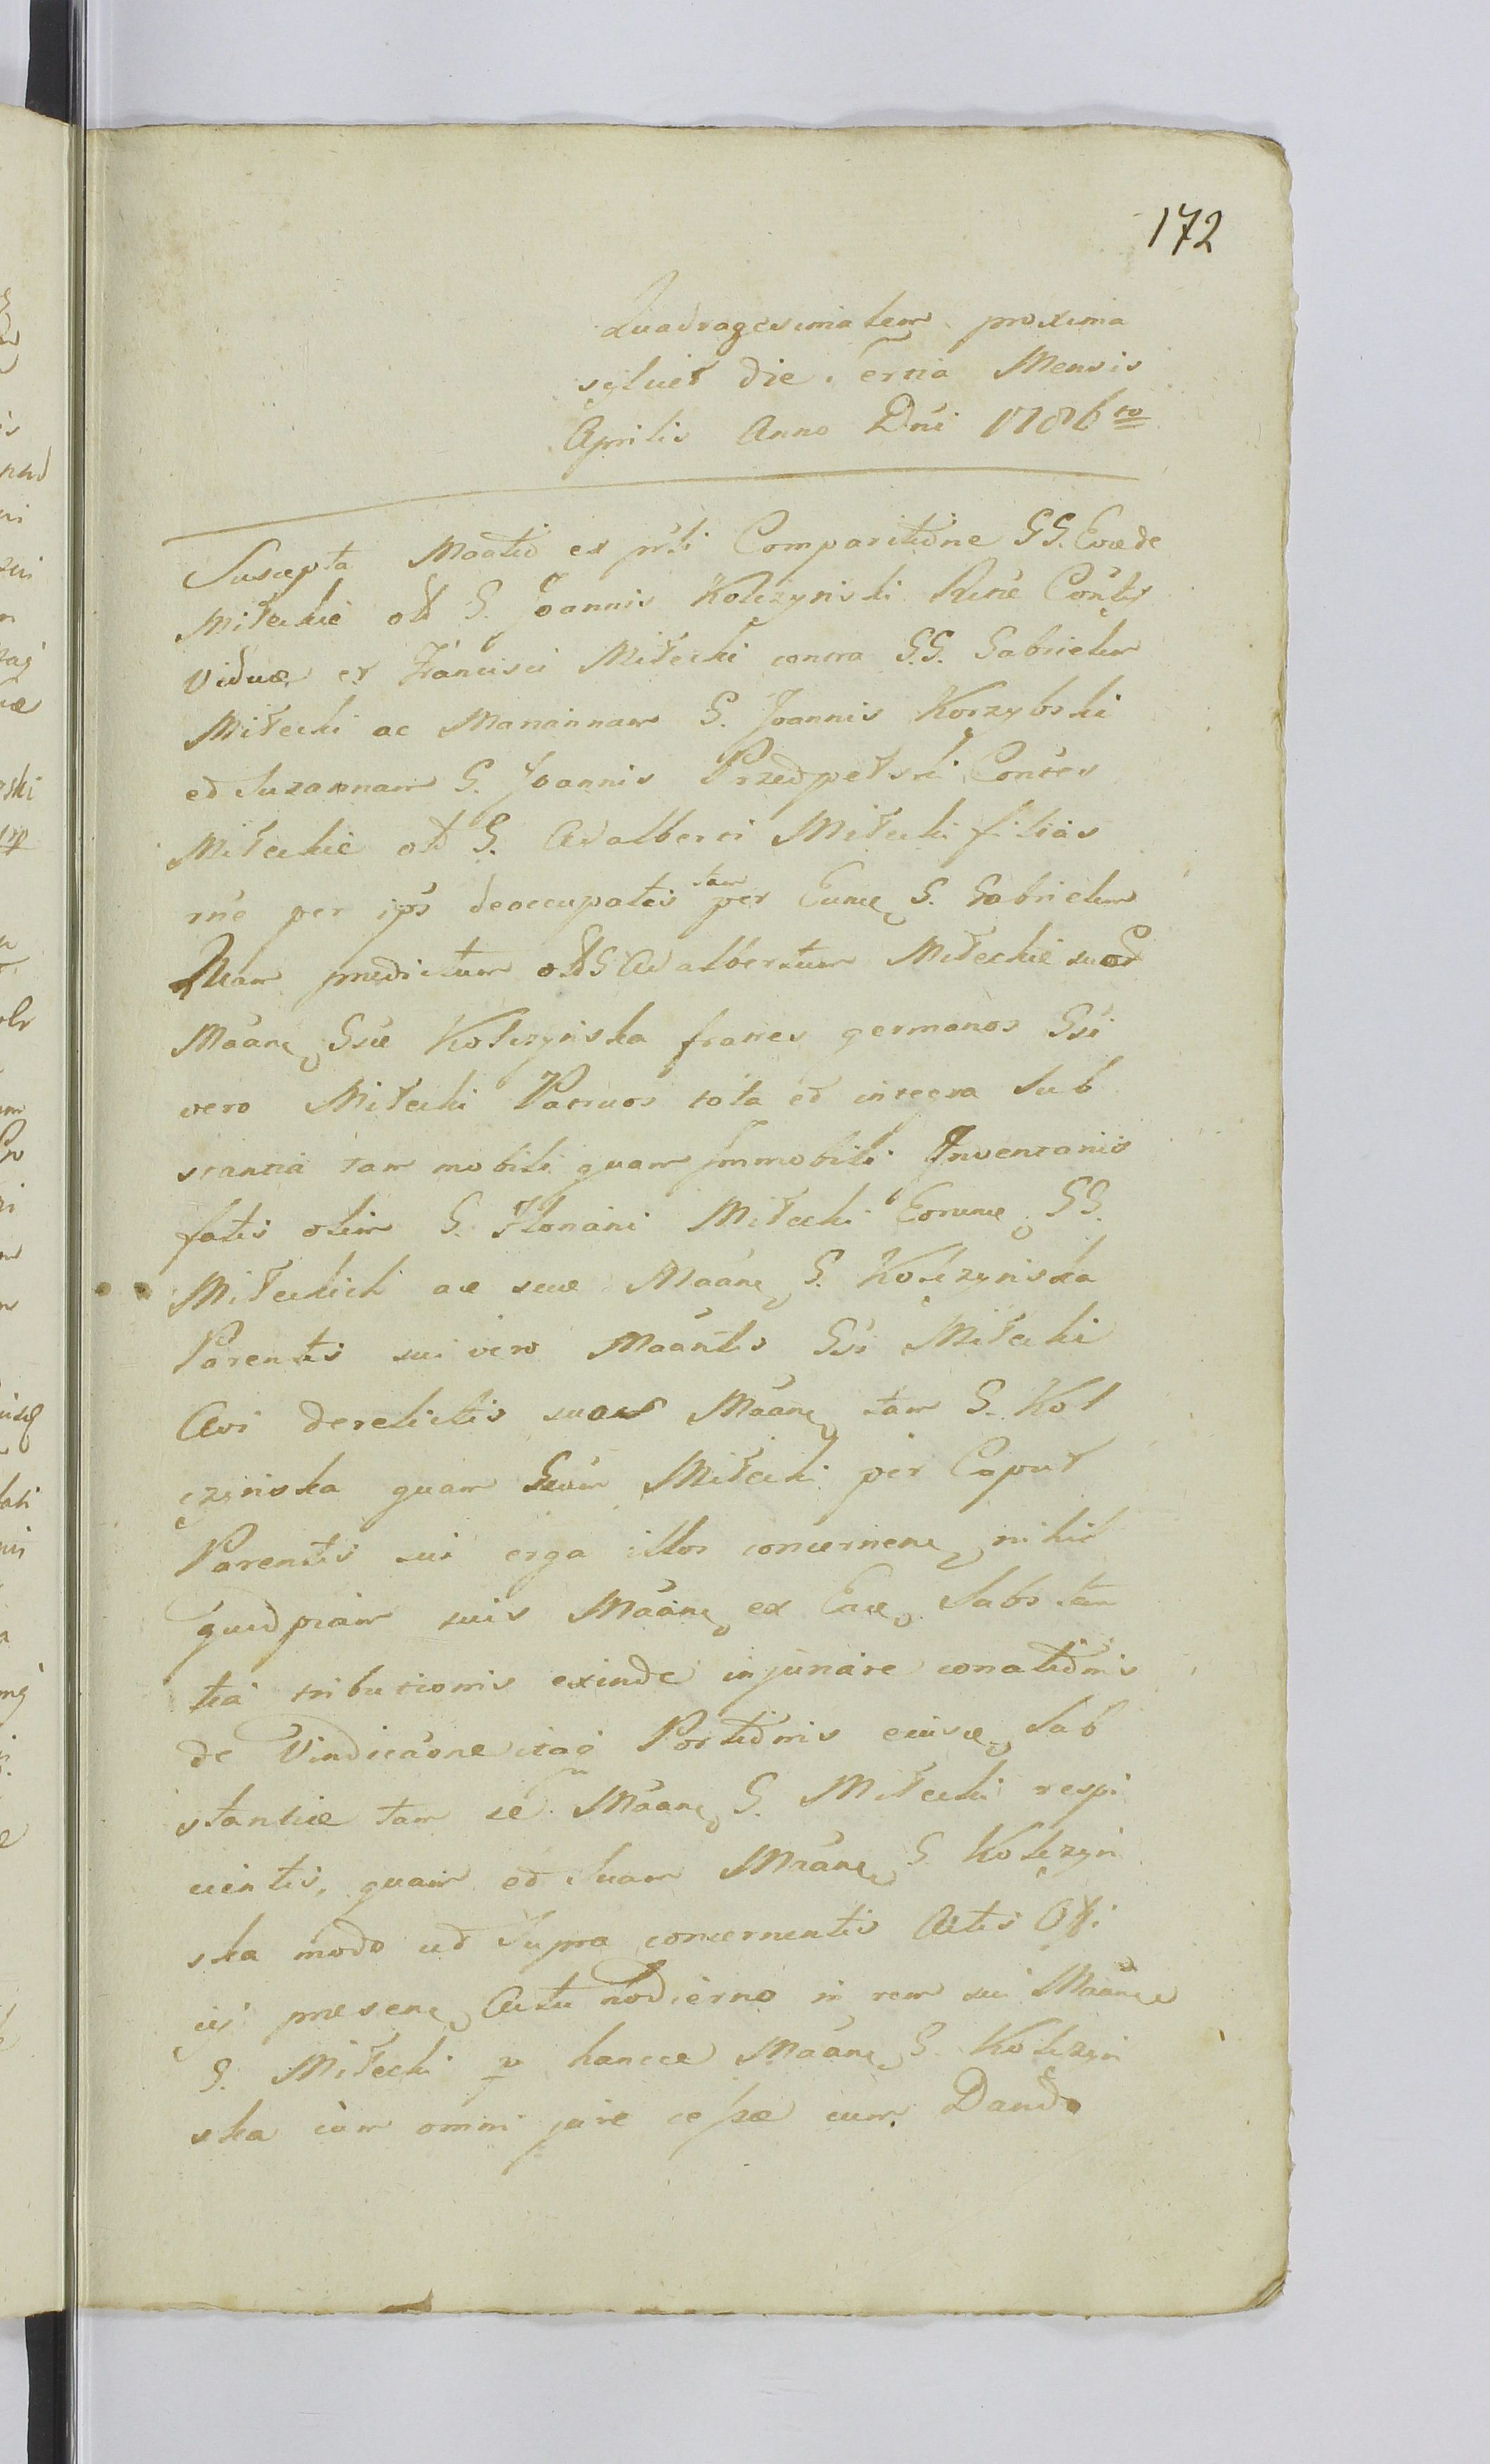 172
Quadragesimalem proxima
sÿluit die 3ernia Mensis
Aprilis Anno Dni 1786to
Suscepta Maatio ex pnti Comparitiõne GG. Evæ de
Miłeckie olt G. Joannis Kolczynski Rlne Contis
Viduæ et Francisci Miłecki contra GG. Gabrielem
Miłecki ac Mariannam G. Joannis Korzybski
ed Suzannam G. Joannis Przedpełski Contes
Miłeckie olt G. Adalberti Miłecki filias
rne per ips deoccupatis tam per Eunc G. Gabrielem
quam predictum olt G Adalbertum Miłeckie suor
Maanc Gsæ Kolczynska fratres germanos Gsi
vero Miłecki Patruos tota ed integra Sub
stantia tam mobili quam Immobili Inventariis
fatis olim G. Floriani Miłecki Eorunc GG.
Miłeckich ac suæ Maanc G. Kolczynska
Parentis sui vero Maantis Gsi Miłecki
Avi derelictis suas Maanc tam G. Kol
czÿnska quam Suum Miłecki per Caput
Parentis sui erga illos concernenc nihil
quidpiam suis Maanc ex Eac Substan
tia tributionis exinde injuriare conatiõnis
de Vindicaõne itaq Portiõnis eiusc Sub
stantiæ tam se Maanc G. Miłecki respi
cientis, quam ed Suam Maanc G. Kolczyn
ska modo ud Supra concernentis Actis Offi
cÿ presenc Actu hodierno in rem sui Maance
G. Miłecki p hancce Maanc G. Kolczyn
ska cum omni jure cessæ cum Dando